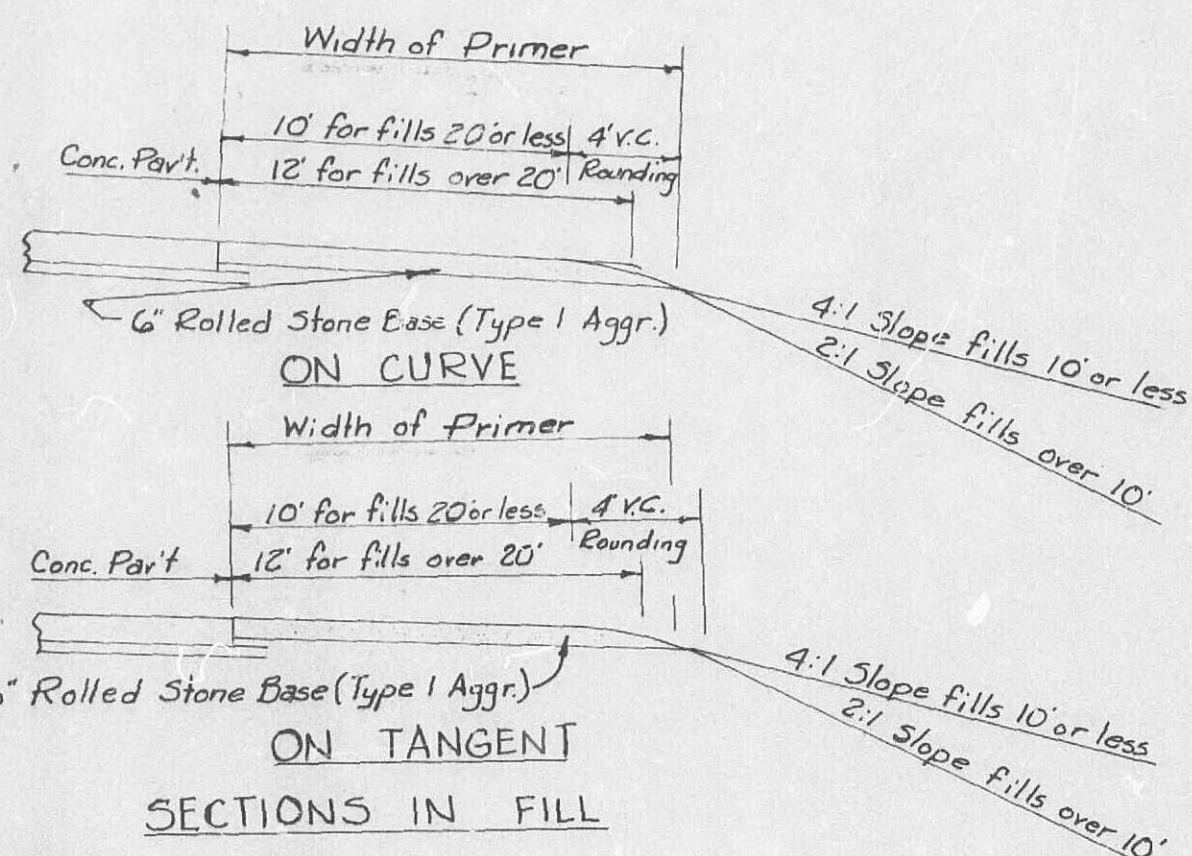 Width of Primer
10' for fills 20' or less 4' V.C.
Conc. Pav't. 12' for fills over 20' Rounding
6" Rolled Stone Base (Type 1 Aggr.)
4:1 Slope fills 10' or less
2:1 Slope fills over 10'
ON CURVE
Width of Primer
10' for fills 20' or less 4' V.C.
Conc. Pav't 12' for fills over 20' Rounding
6" Rolled Stone Base (Type 1 Aggr.)
4:1 Slope fills 10' or less
2:1 Slope fills over 10'
ON TANGENT
SECTIONS IN FILL